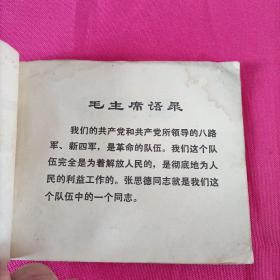 毛主席语录
我们的共产党和共产党所领导的八路
军、新四军，是革命的队伍。我们这个队
伍完全是为着解放人民的，是彻底地为人
民的利益工作的。张思德同志就是我们这
个队伍中的一个同志。